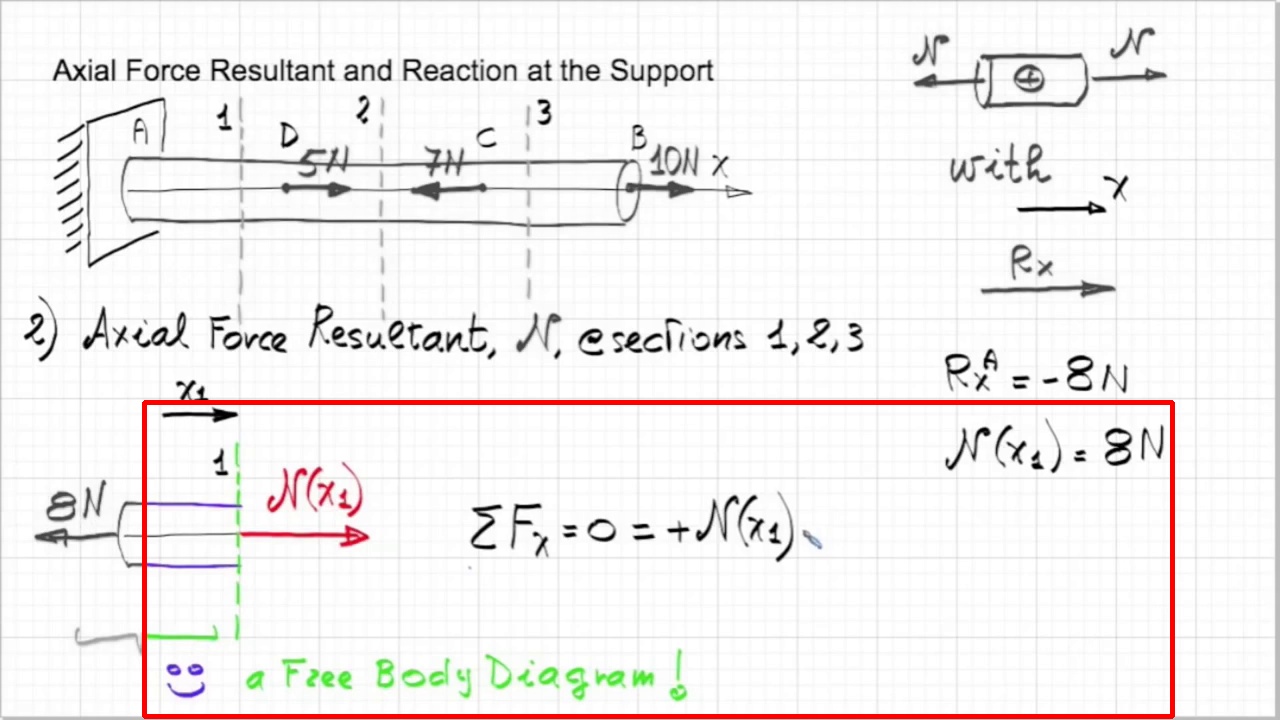 Axial Force Resultant and Reaction at the Support
N N
+
1 2 3
A D C B
5N 7N 10N x
with
x
Rx
2) Axial Force Resultant, N, @sections 1,2,3
RxA = -8N
x1
N(x1) = 8N
1
8N N(x1)
ΣFx = 0 = +N(x1)
a Free Body Diagram!